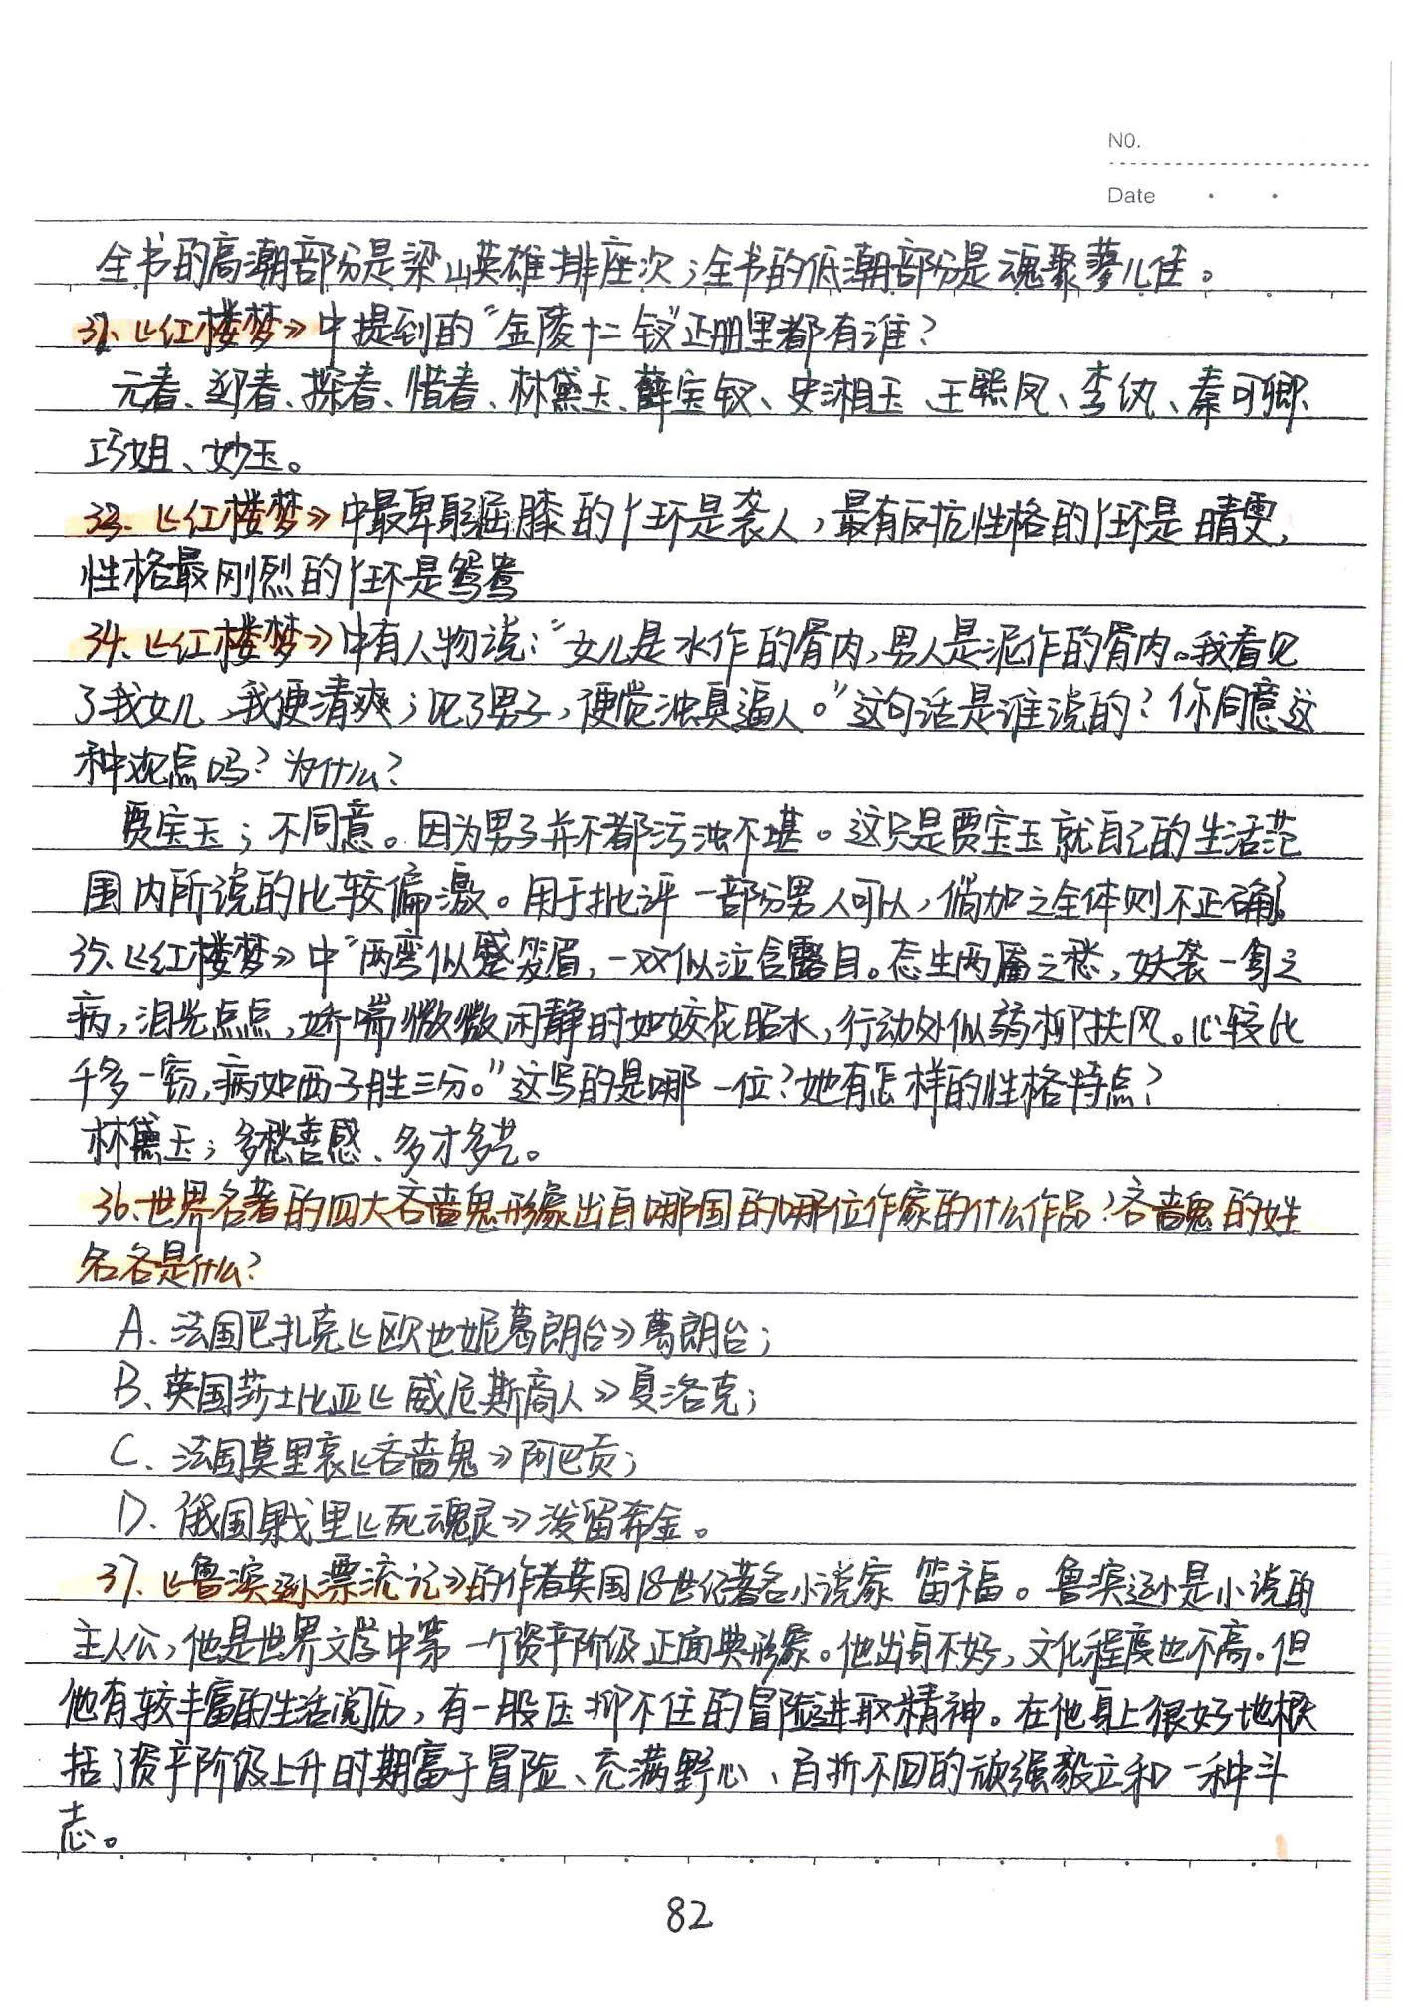 NO.
Date
全书的高潮部份是梁山英雄排座次；全书的低潮部份是魂聚蓼儿佳。
32、《红楼梦》中提到的“金陵十二钗”正册里都有谁？
元春、迎春、探春、惜春、林黛玉、薛宝钗、史湘玉、王熙凤、李纨、秦可卿、
巧姐、妙玉。
33、《红楼梦》中最卑躬屈膝的丫环是袭人，最有反抗性格的丫环是晴雯，
性格最刚烈的丫环是鸳鸯
34、《红楼梦》中有人物说：“女儿是水作的骨肉，男人是泥作的骨肉。我看见
了我女儿，我便清爽；见了男子，便觉浊臭逼人。”这句话是谁说的？你同意这
种观点吗？为什么？
贾宝玉；不同意。因为男子并不都污浊不堪。这只是贾宝玉就自己的生活范
围内所说的比较偏激。用于批评一部分男人可以，倘加之全体则不正确。
35、《红楼梦》中“两弯似蹙笼眉，一双似泣含露目。态生两靥之愁，妖袭一身之
病，泪光点点，娇喘微微闲静时如姣花昭水，行动处似弱柳扶风。心较比
千多一窍，病如西子胜三分。”这写的是哪一位？她有怎样的性格特点？
林黛玉；多愁善感、多才多艺。
36、世界名著的四大吝啬鬼形象出自哪国的哪位作家的什么作品？吝啬鬼的姓
名名是什么？
A、法国巴扎克《欧也妮葛朗台》葛朗台；
B、英国莎士比亚《威尼斯商人》夏洛克；
C、法国莫里哀《吝啬鬼》阿巴贡；
D、俄国果戈里《死魂灵》泼留希金。
37、《鲁滨逊漂流记》的作者英国18世纪著名小说家 笛福。鲁滨逊是小说的
主人公，他是世界文学中第一个资产阶级正面典形象。他出身不好，文化程度也不高。但
他有较丰富的生活阅历，有一股压抑不住的冒险进取精神。在他身上很好地概
括了资产阶级上升时期富于冒险、充满野心、百折不回的顽强毅立和一种斗
志。
82